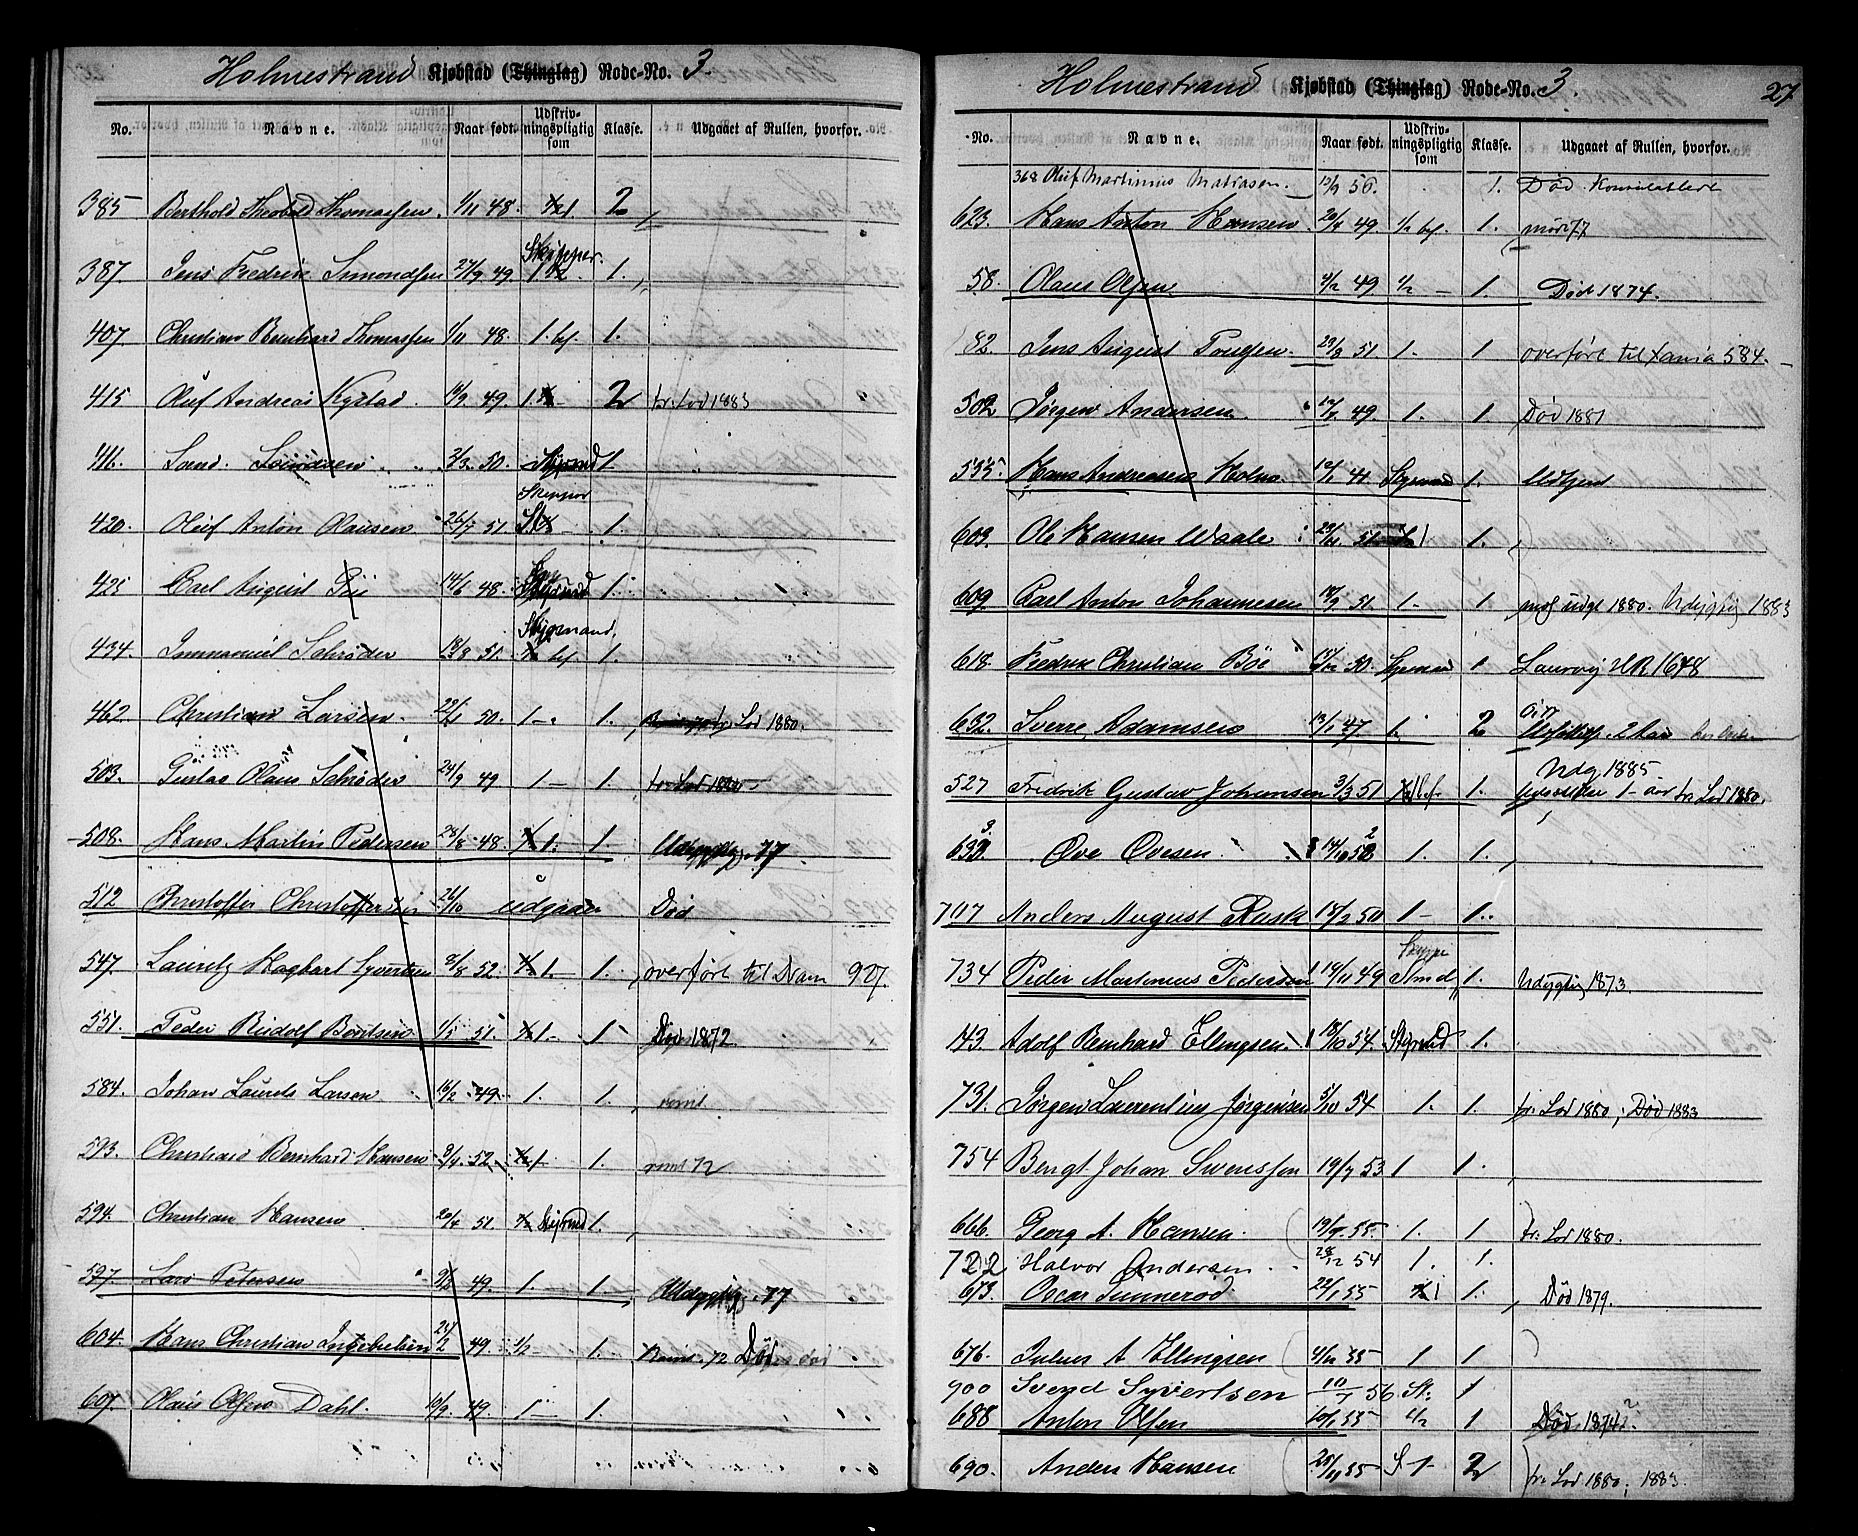 Holmestrand Kjøbstad (Thinglag) Rode-No. 3.
No. Navne. Naar født. Udskriv-ningspligtig som Klasse. Udgaaet af Rullen, hvorfor.
385 Berthold Theobald Thomassen. 1/11 48. 2
387. Jens Fredrik Simondsen 27/9 49. Skipper. 1.
407. Christian Bernhard Thomassen 1/11 48. 1. bf. 1.
415 Oluf Andreas Kystad. 49. 1. 2 fr. Lod 1883
416. 2/3. 50. Styrmd 1.
420. Oluf Anton Olausen 26/7 51. Skipper 1.
425 Carl August Bøe 14/6 48. Styrmd 1.
434. Immanuel Schrøder 18/8 51. Styrmand. bf. 1.
462. Christian Larsen. 50. 1 1. fr. Lod 1880.
503. Gustav Olaus Schrøder 24/9 49 1 — 1.
508. Hans Martin Pedersen 28/8 48. 1. 1. Udygtig 77
512 Christoffer Christoffersen 26/10 udgaar Død
547. Lauritz Hagbart Syvertsen 8/8 52. 1. 1. overført til Dram 927.
551. Peder Rudolf Berntsen 1/5 51. 1 1 Død 1872
584. Johan Laurits Larsen 16/2 49. 1. 1. rømt
593. Christian Bernhard Hansen 9/4. 52. 1 1. rømt 72
594. Christian Hansen 20/4 51. ½ Styrmd 1.
597. Lars Petersen 49. 1 1. Udygtig. 77
604. Hans Christian Ingebretsen 21/2 49. ½ 1. Rømt 72 Død
607. Olaus Olsen Dahl. 10/9. 49. 1 — 1.
Holmestrand Kjøbstad (Thinglag) Rode-No. 3. 27
No. Navne. Naar født. Udskriv-ningspligtig som Klasse. Udgaaet af Rullen, hvorfor.
368 Oluf Martinius Matiasen. 13/9 56. 1. Død
623. Hans Anton Hansen 20/4 49. ½ bf. 1. 77
58. Olaus Olsen 4/2 49 ½ — 1. Død 1874.
82. Jens August Poulsen. 51. 1. 1 overført til Xania 584.
502 Jørgen Andersen 12/7 49. 1. 1. Død 1881
535. Hans Andreasen Holm Styrmd 1. Udtjent
603. Ole Hansen Waale 51 1 1.
609. Carl Anton Johannesen 18/9 51. 1. 1. udgt 1880. Udygtig 1883
618. Fredrik Christian Bøe 50. Styrmd 1 Laurvig HR 1648
632. Sverre Adamsen 13/1 47 1. 2.
527 Fredrik Gustav Johansen 3/3 51 bf. 1. Udg 1885. 1 aar fr. Lod 1880.
633. Ove Ovesen 14/10 52 1. 1.
717 Anders August Rask 18/2 50 1 — 1.
734 Peder Martinius Pedersen 19/11 49 Stmd 1. Udygtig 1873.
143. Adolf Bernhard Ellingsen. 18/10 54. Styrmd 1.
731. Jørgen Laurentius Jørgensen 5/10 54 1. 1. fr. Lod 1880; Død 1883
754 Bengt Johan Svensson 19/7 53 1 1.
666. Georg A. Hansen. 19/9 55. 1. 1. fr. Lod 1880.
722 Halvor Andersen 28/12 54 1. 1.
673. Oscar Sunnerod. 22/1 55 1 1. Død 1879.
676. Julius A Ellingsen 4/12 55 1 1
900 Svend Syvertsen 11/1 56 St. 1
688 Anton Olsen 10/1 55 ½ 1 Død 1874?
690. Anders Hansen 28/11 55 S 1 2 fr. Lod 1880; 1883.